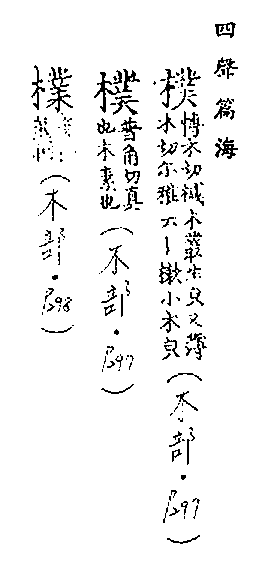 四聲篇海
樸博木切棫木叢生皃又薄木切尔雅云丨樕小木皃(木部・P297)
樸普角切真也木素也(木部・P297)
檏(木部・P298)